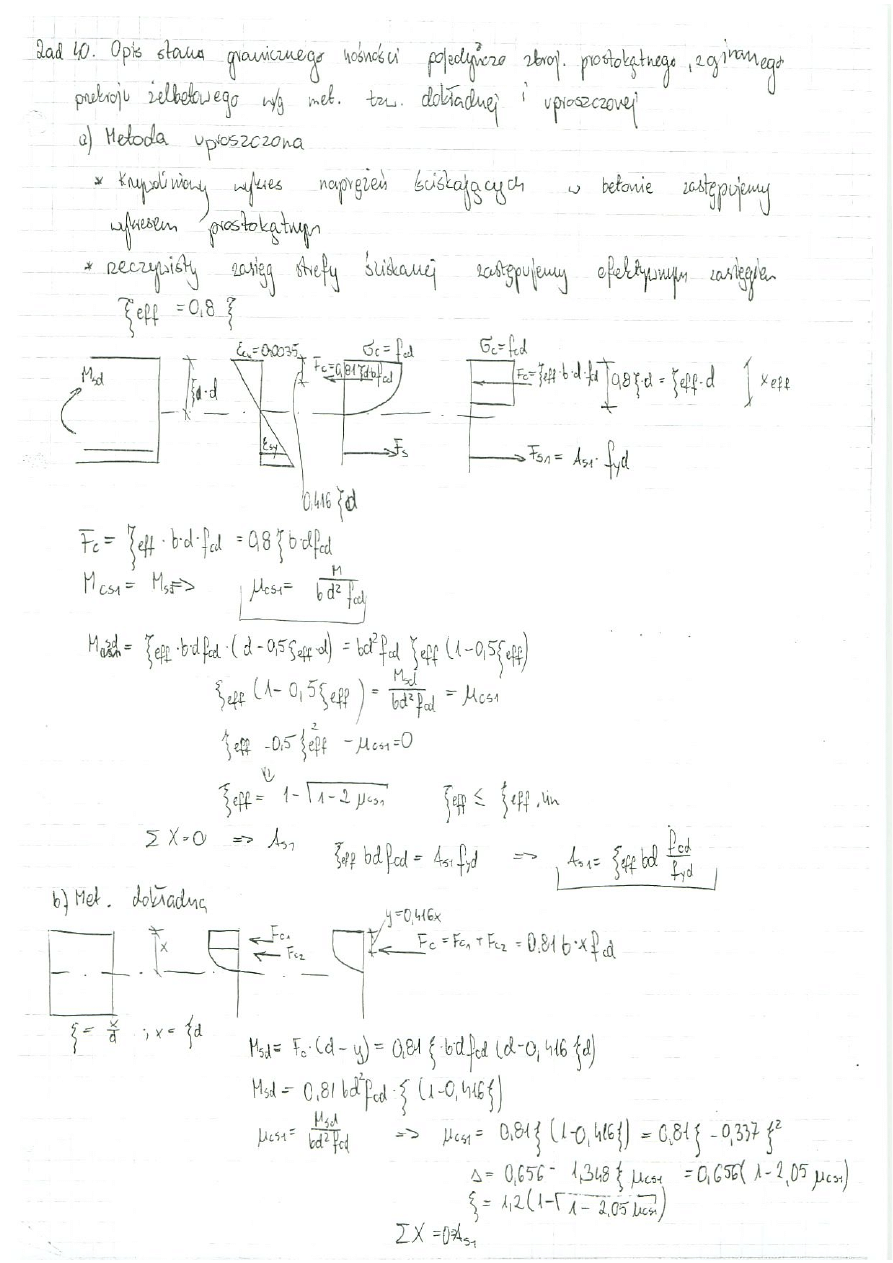 Zad 40. Opis stanu granicznego nośności pojedyńczo zbroj. prostokątnego, zginanego
przekroju żelbetowego wg met. tzw. dokładnej i uproszczonej
a) Metoda uproszczona
* Krzywoliniowy wykres naprężeń ściskających w betonie zastępujemy
wykresem prostokątnym
* rzeczywisty zasięg strefy ściskanej zastępujemy efektywnym zasięgiem
ξeff = 0,8 ξ
Msd ξd·d εcu = 0,0035 Fc = 0,81ξdbfcd σc = fcd σc = fcd Fc = ξeff·b·d·fd 0,8ξ·d = ξeff·d xeff
εsy Fs Fs1 = As1·fyd
0,416 ξd
Fc = ξeff·b·d·fcd = 0,8 ξ b·dfcd
Mcs1 = Msd => μcs1 = M / bd² fcd
Msd = ξeff·bdfcd·(d-0,5ξeff·d) = bd²fcd ξeff (1-0,5ξeff)
ξeff (1-0,5ξeff) = Msd / bd²fcd = μcs1
ξeff -0,5ξ²eff - μcs1 = 0
ξeff = 1-√1-2μcs1 ξeff ≤ ξeff,lim
Σ X=0 => As1 ξeff bdfcd = As1fyd => As1 = ξeff bd fcd / fyd
b) Met. dokładna
x Fc1 Fc2 y=0,416x Fc = Fc1 + Fc2 = 0,81 b·xfcd
ξ = x / d ; x = ξd
Msd = Fc·(d-y) = 0,81 ξ·bdfcd (d-0,416 ξd)
Msd = 0,81 bd²fcd·ξ (1-0,416ξ)
μcs1 = Msd / bd²fcd => μcs1 = 0,81ξ (1-0,416ξ) = 0,81ξ -0,337 ξ²
Δ = 0,656 - 1,348ξ μcs1 = 0,656(1-2,05 μcs1)
ξ = 1,2(1-√1-2,05 μcs1)
ΣX = 0 => As1